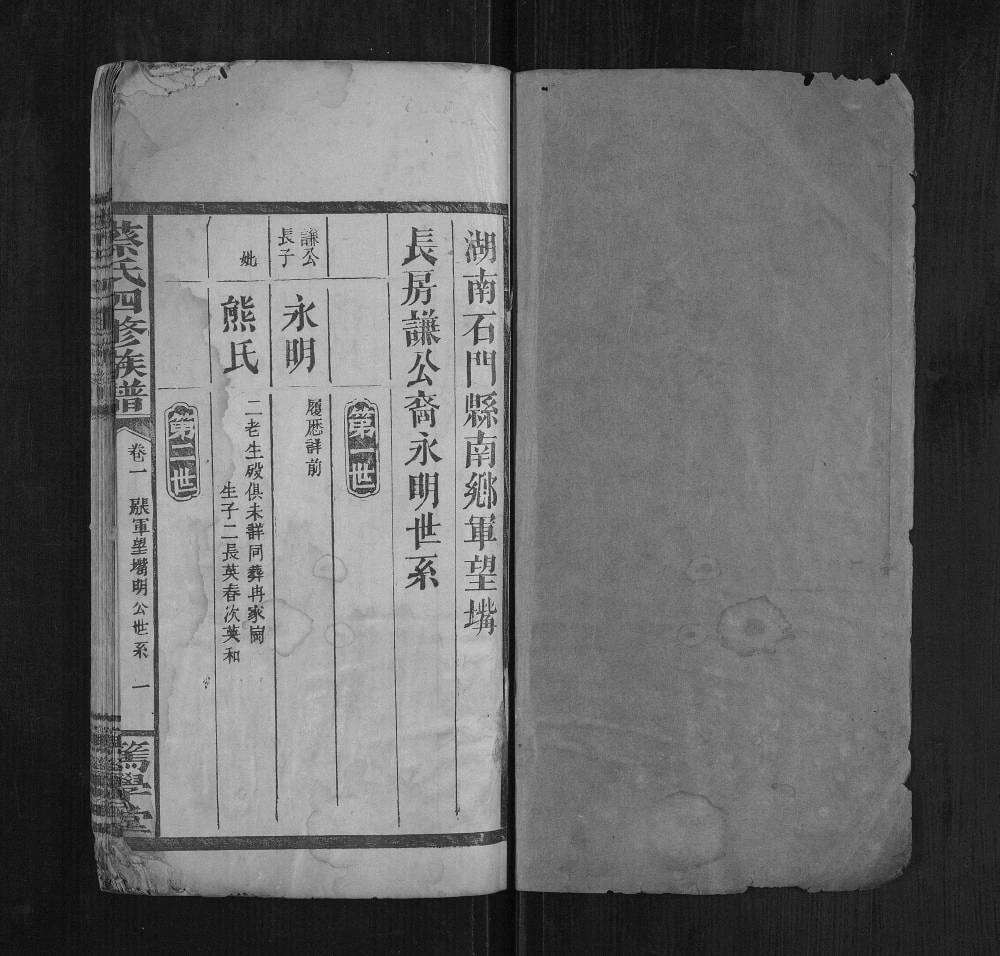 湖南石門縣南鄉軍望嘴
長房謙公裔永明世系
第一世
謙公
長子
永明
履歷詳前
妣
熊氏
二老生殁俱未詳同葬冉家崗
生子二長英春次英和
第二世
蔡氏四修族譜
卷一
軍望嘴明公世系
一
篤學堂